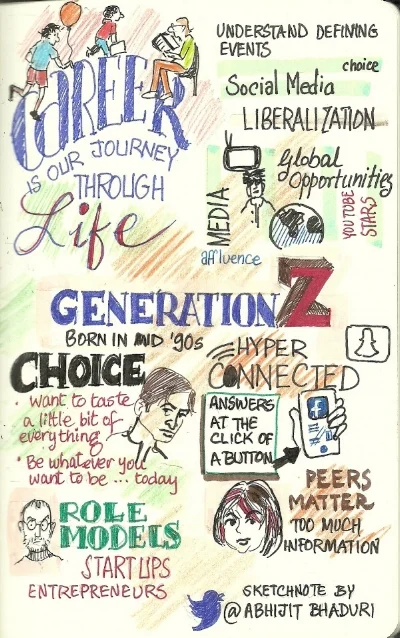 CAREER
IS OUR JOURNEY
THROUGH
Life
UNDERSTAND DEFINING
EVENTS
choice
Social Media
LIBERALIZATION
Global
Opportunities
MEDIA
YOUTOBE
STARS
affluence
GENERATION Z
BORN IN MID '90s
CHOICE
• Want to taste
a little bit of
everything
• Be whatever you
want to be ... today
HYPER
CONNECTED
ANSWERS
AT THE
CLICK OF
A BUTTON
f
PEERS
MATTER
TOO MUCH
INFORMATION
ROLE
MODELS
START UPS
ENTREPRENEURS
SKETCHNOTE BY
@ABHIJIT BHADURI